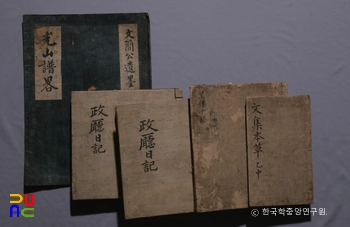 光山譜略
文簡公遺墨
政廳日記
政廳日記
文集本草 乙中
© 한국학중앙연구원